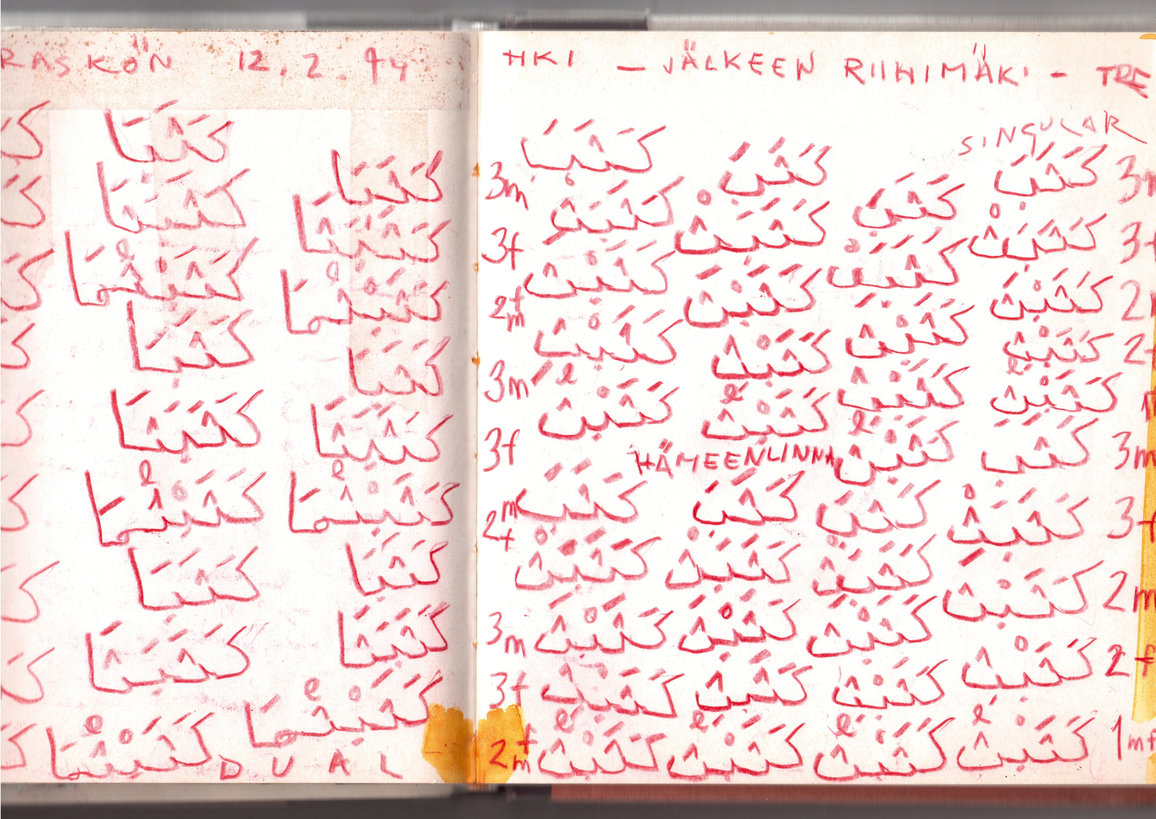 RASKÖN 12.2.94
كَتَبَا كَتَبَا 3m
كَتَبَتَا كَتَبَتَا 3f
كَتَبْتُمَا كَتَبْتُمَا 2 f m
كَتَبَا كَتَبَا 3m
كَتَبَتَا كَتَبَتَا 3f
كَتَبْتُمَا كَتَبْتُمَا 2 m f
كَتَبَا كَتَبَا 3m
كَتَبَتَا كَتَبَتَا 3f
كَتَبْتُمَا كَتَبْتُمَا 2 f m
DUAL
HKI – JÄLKEEN RIIHIMÄKI – TRE
SINGULAR
3m كَتَبَ كَتَبَ كَتَبَ
3f كَتَبَتْ كَتَبَتْ كَتَبَتْ كَتَبَتْ
كَتَبْتَ كَتَبْتَ كَتَبْتَ كَتَبْتَ
كَتَبْتِ كَتَبْتِ كَتَبْتِ كَتَبْتِ
كَتَبْتُ كَتَبْتُ كَتَبْتُ كَتَبْتُ
HÄMEENLINNA
3m كَتَبَ كَتَبَ كَتَبَ كَتَبَ
3f كَتَبَتْ كَتَبَتْ كَتَبَتْ كَتَبَتْ
2m كَتَبْتَ كَتَبْتَ كَتَبْتَ كَتَبْتَ
2f كَتَبْتِ كَتَبْتِ كَتَبْتِ كَتَبْتِ
1mf كَتَبْتُ كَتَبْتُ كَتَبْتُ كَتَبْتُ